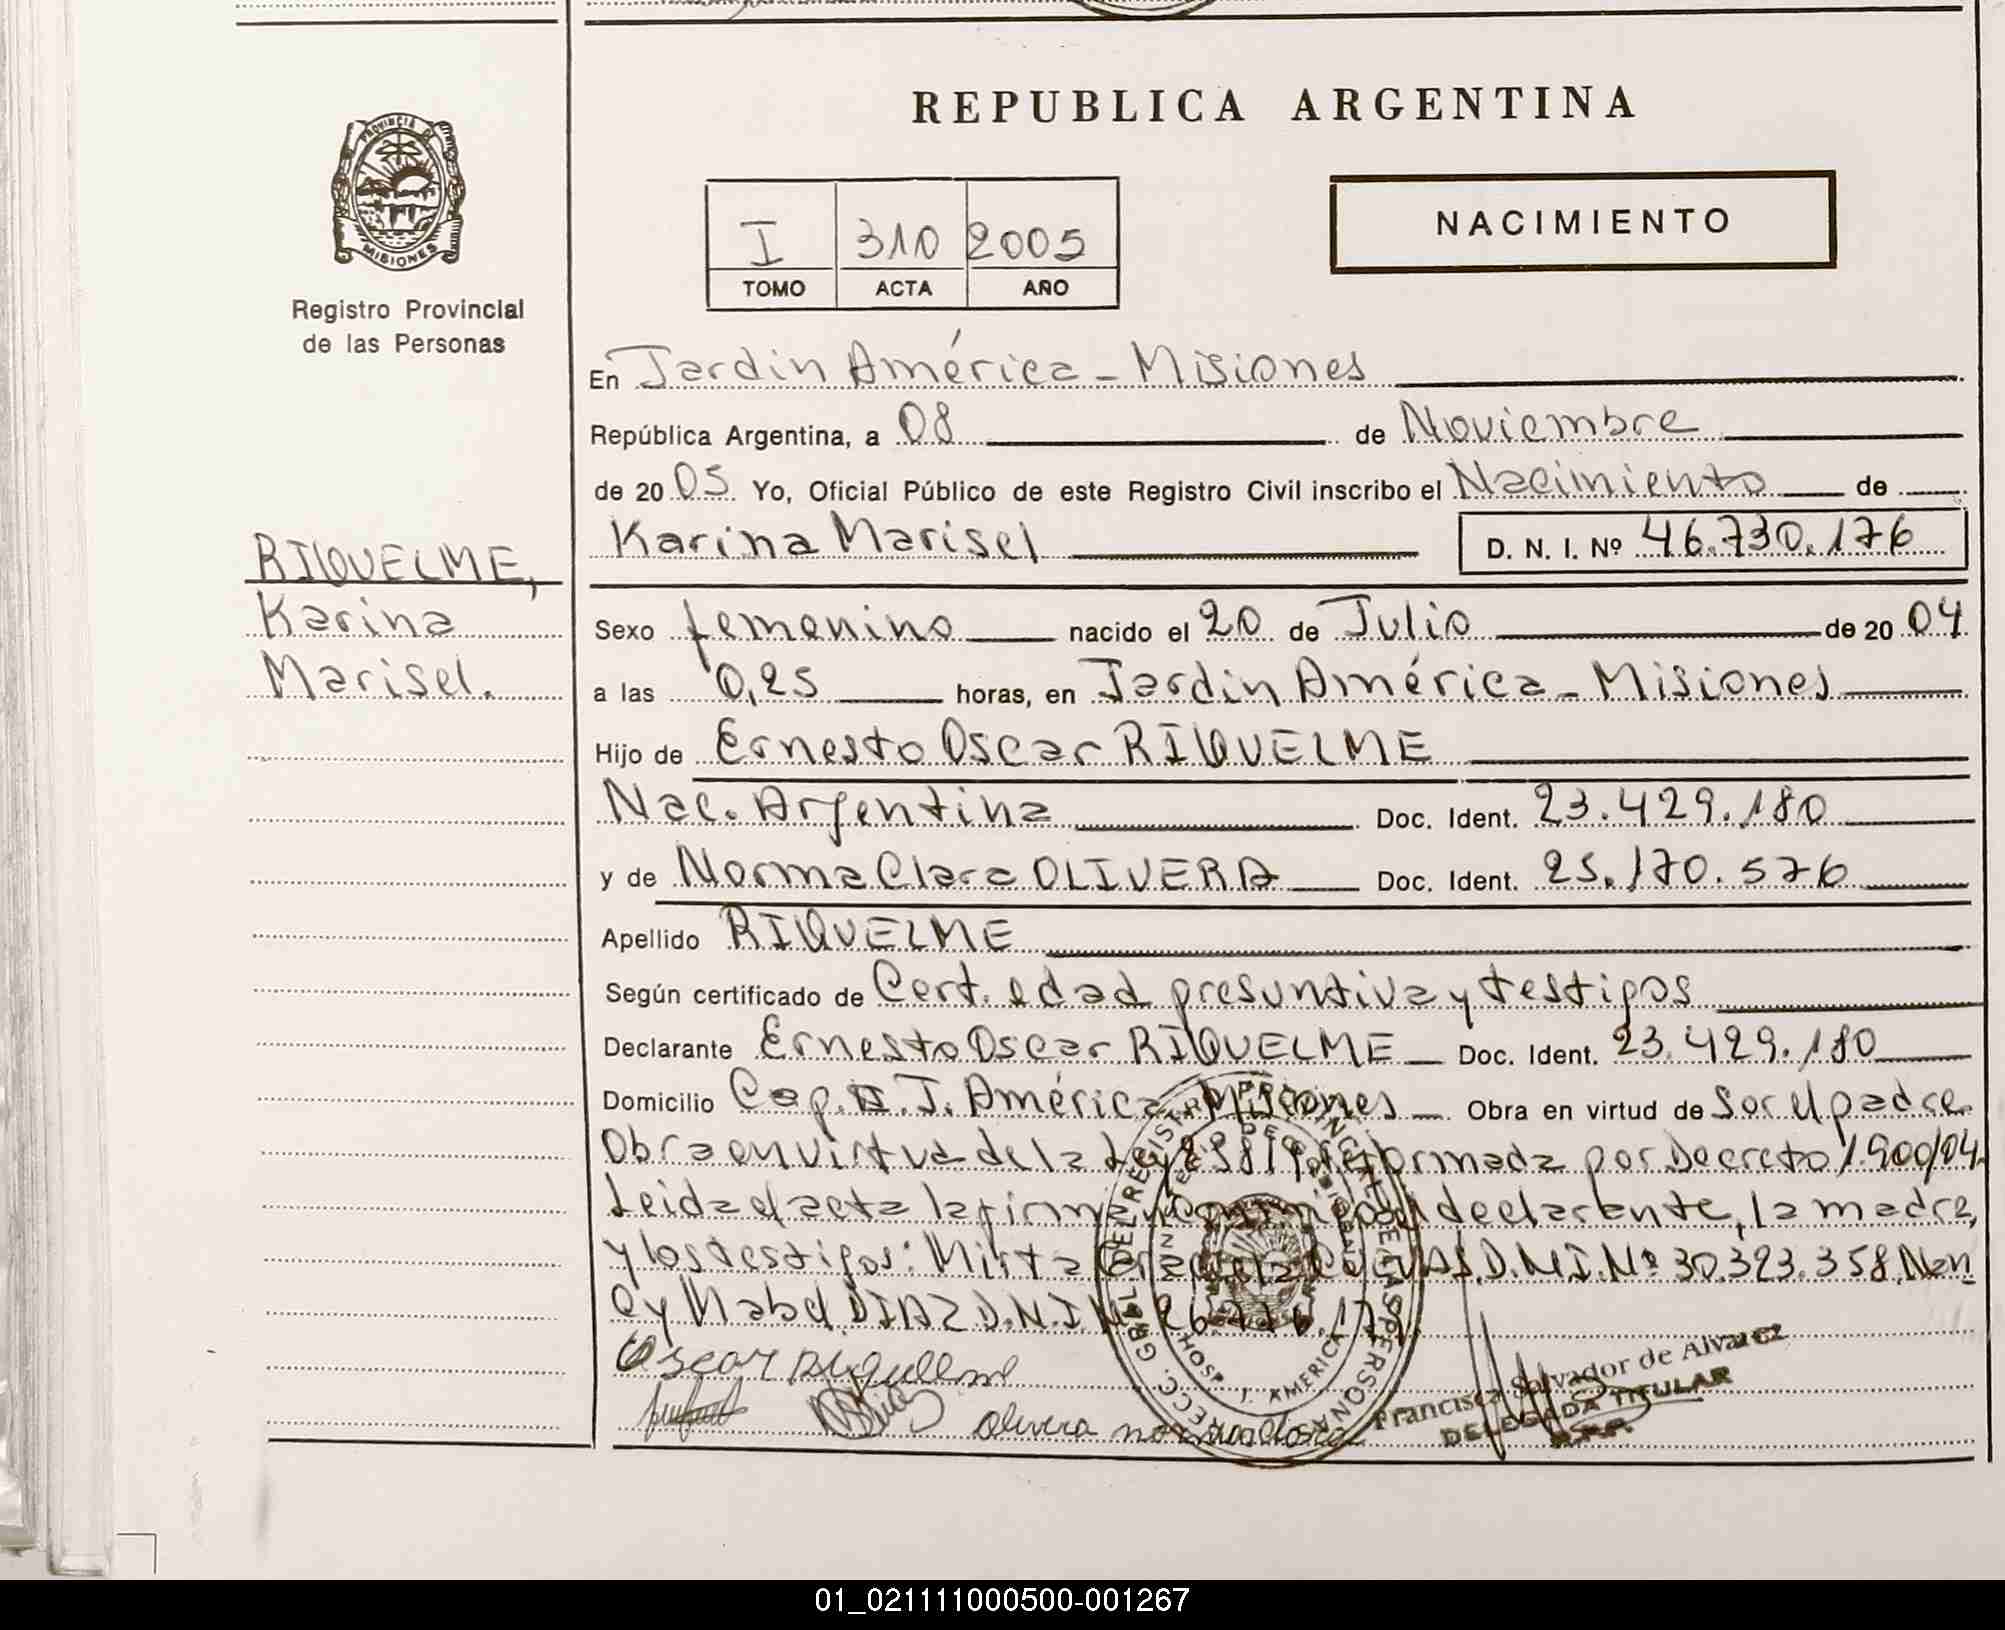 REPUBLICA ARGENTINA
PROVINCIA DE
MISIONES
Registro Provincial
de las Personas
I 310 2005
TOMO ACTA AÑO
NACIMIENTO
En Jardin América - Misiones
República Argentina, a 08 de Noviembre
de 20 05 Yo, Oficial Público de este Registro Civil inscribo el Nacimiento de
Karina Marisel D. N. I. Nº 46.730.176
RIQUELME,
Karina
Marisel.
Sexo femenino nacido el 20 de Julio de 20 04
a las 0,25 horas, en Jardin América - Misiones
Hijo de Ernesto Oscar RIQUELME
Nac. Argentina Doc. Ident. 23.429.180
y de Norma Clara OLIVERA Doc. Ident. 25.170.576
Apellido RIQUELME
Según certificado de Cert. edad presuntiva y testigos
Declarante Ernesto Oscar RIQUELME Doc. Ident. 23.429.180
Domicilio J. América Misiones Obra en virtud de Ser el padre
Obra en virtud de la Ley reformada por Decreto 1.900/04
Leida el acta la firman conmigo el declarante, la madre,
y los testigos: Mirta D.N.I. Nº 30.323.358, Nan
cy Mabel DIAZ D.N.I. Nº
Oscar Riquelme
Olivera norma
Francisca Salvador de Alvarez
DELEGADA TITULAR
HOSP. J. AMERICA
01_021111000500-001267